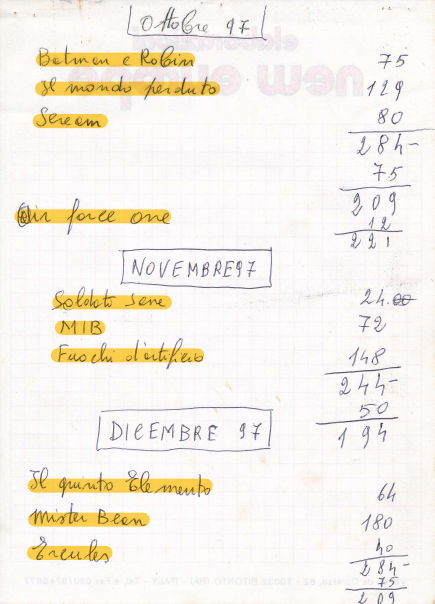 Ottobre 97
Batman e Robin 75
Il mondo perduto 129
Scream 80
284-
75
209
Air force one 12
221
NOVEMBRE 97
Soldato Jane 24.00
MIB 72
Fuochi d'artificio 148
244-
50
194
DICEMBRE 97
Il quinto Elemento 64
Mister Bean 180
Ercules 40
284-
75
209